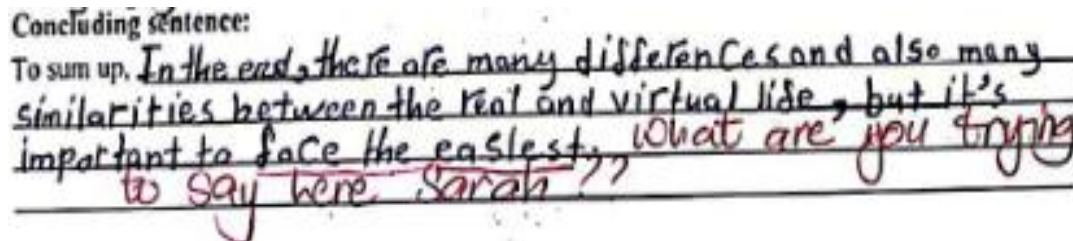 Concluding sentence:
To sum up, In the end, there are many differences and also many
similarities between the real and virtual life, but it's
important to face the easlest. What are you trying
to say here Sarah??